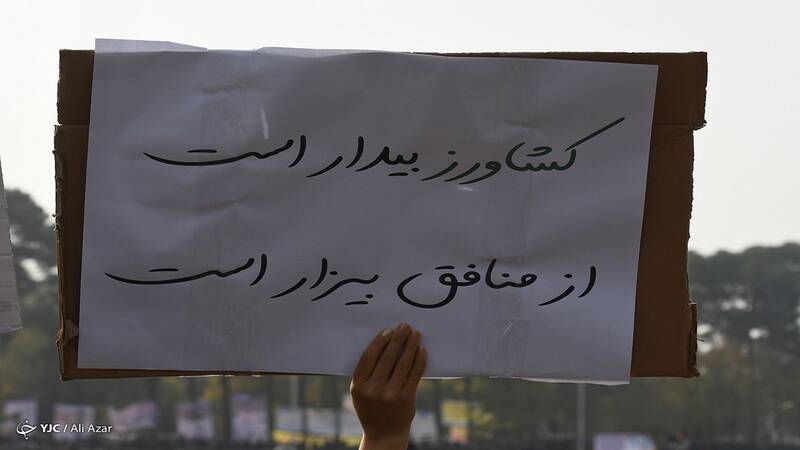 کشاورز بیدار است
از منافق بیزار است
YJC / Ali Azar